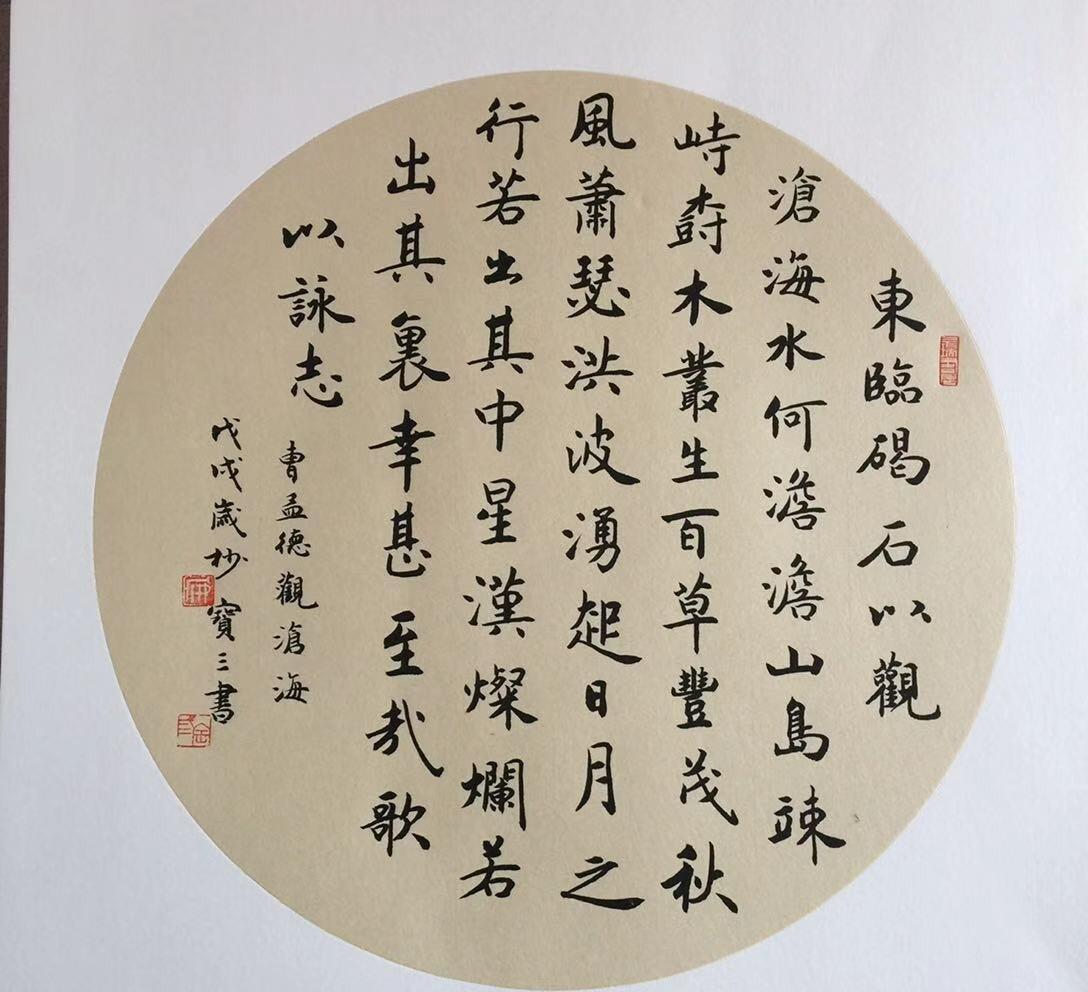 東臨碣石以觀
滄海水何澹澹山島竦
峙樹木叢生百草豐茂秋
風蕭瑟洪波湧起日月之
行若出其中星漢燦爛若
出其裏幸甚至哉歌
以詠志
曹孟德觀滄海
戊戌歲杪寶三書